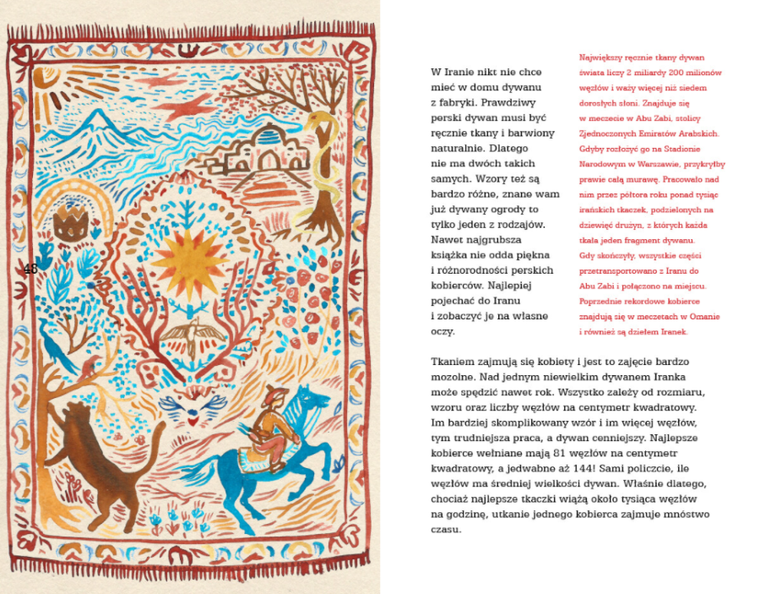 48
W Iranie nikt nie chce
mieć w domu dywanu
z fabryki. Prawdziwy
perski dywan musi być
ręcznie tkany i barwiony
naturalnie. Dlatego
nie ma dwóch takich
samych. Wzory też są
bardzo różne, znane wam
już dywany ogrody to
tylko jeden z rodzajów.
Nawet najgrubsza
książka nie odda piękna
i różnorodności perskich
kobierców. Najlepiej
pojechać do Iranu
i zobaczyć je na własne
oczy.
Największy ręcznie tkany dywan
świata liczy 2 miliardy 200 milionów
węzłów i waży więcej niż siedem
dorosłych słoni. Znajduje się
w meczecie w Abu Zabi, stolicy
Zjednoczonych Emiratów Arabskich.
Gdyby rozłożyć go na Stadionie
Narodowym w Warszawie, przykryłby
prawie całą murawę. Pracowało nad
nim przez półtora roku ponad tysiąc
irańskich tkaczek, podzielonych na
dziewięć drużyn, z których każda
tkała jeden fragment dywanu.
Gdy skończyły, wszystkie części
przetransportowano z Iranu do
Abu Zabi i połączono na miejscu.
Poprzednie rekordowe kobierce
znajdują się w meczetach w Omanie
i również są dziełem Iranek.
Tkaniem zajmują się kobiety i jest to zajęcie bardzo
mozolne. Nad jednym niewielkim dywanem Iranka
może spędzić nawet rok. Wszystko zależy od rozmiaru,
wzoru oraz liczby węzłów na centymetr kwadratowy.
Im bardziej skomplikowany wzór i im więcej węzłów,
tym trudniejsza praca, a dywan cenniejszy. Najlepsze
kobierce wełniane mają 81 węzłów na centymetr
kwadratowy, a jedwabne aż 144! Sami policzcie, ile
węzłów ma średniej wielkości dywan. Właśnie dlatego,
chociaż najlepsze tkaczki wiążą około tysiąca węzłów
na godzinę, utkanie jednego kobierca zajmuje mnóstwo
czasu.